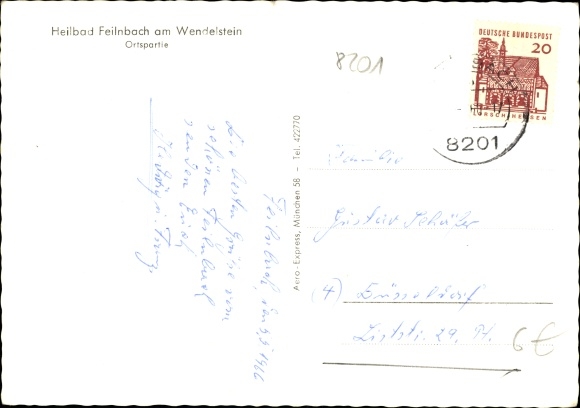 Heilbad Feilnbach am Wendelstein
Ortspartie
8201
DEUTSCHE BUNDESPOST
20
LORSCH/HESSEN
8201
Feilnbach, 1966
Die besten Grüße vom
schönen Feilnbach
senden Euch
Aero-Express, München 58 - Tel. 422770
Familie
Gustav Schäfer
(4) Düsseldorf
Liststr. 29. H.
6 €